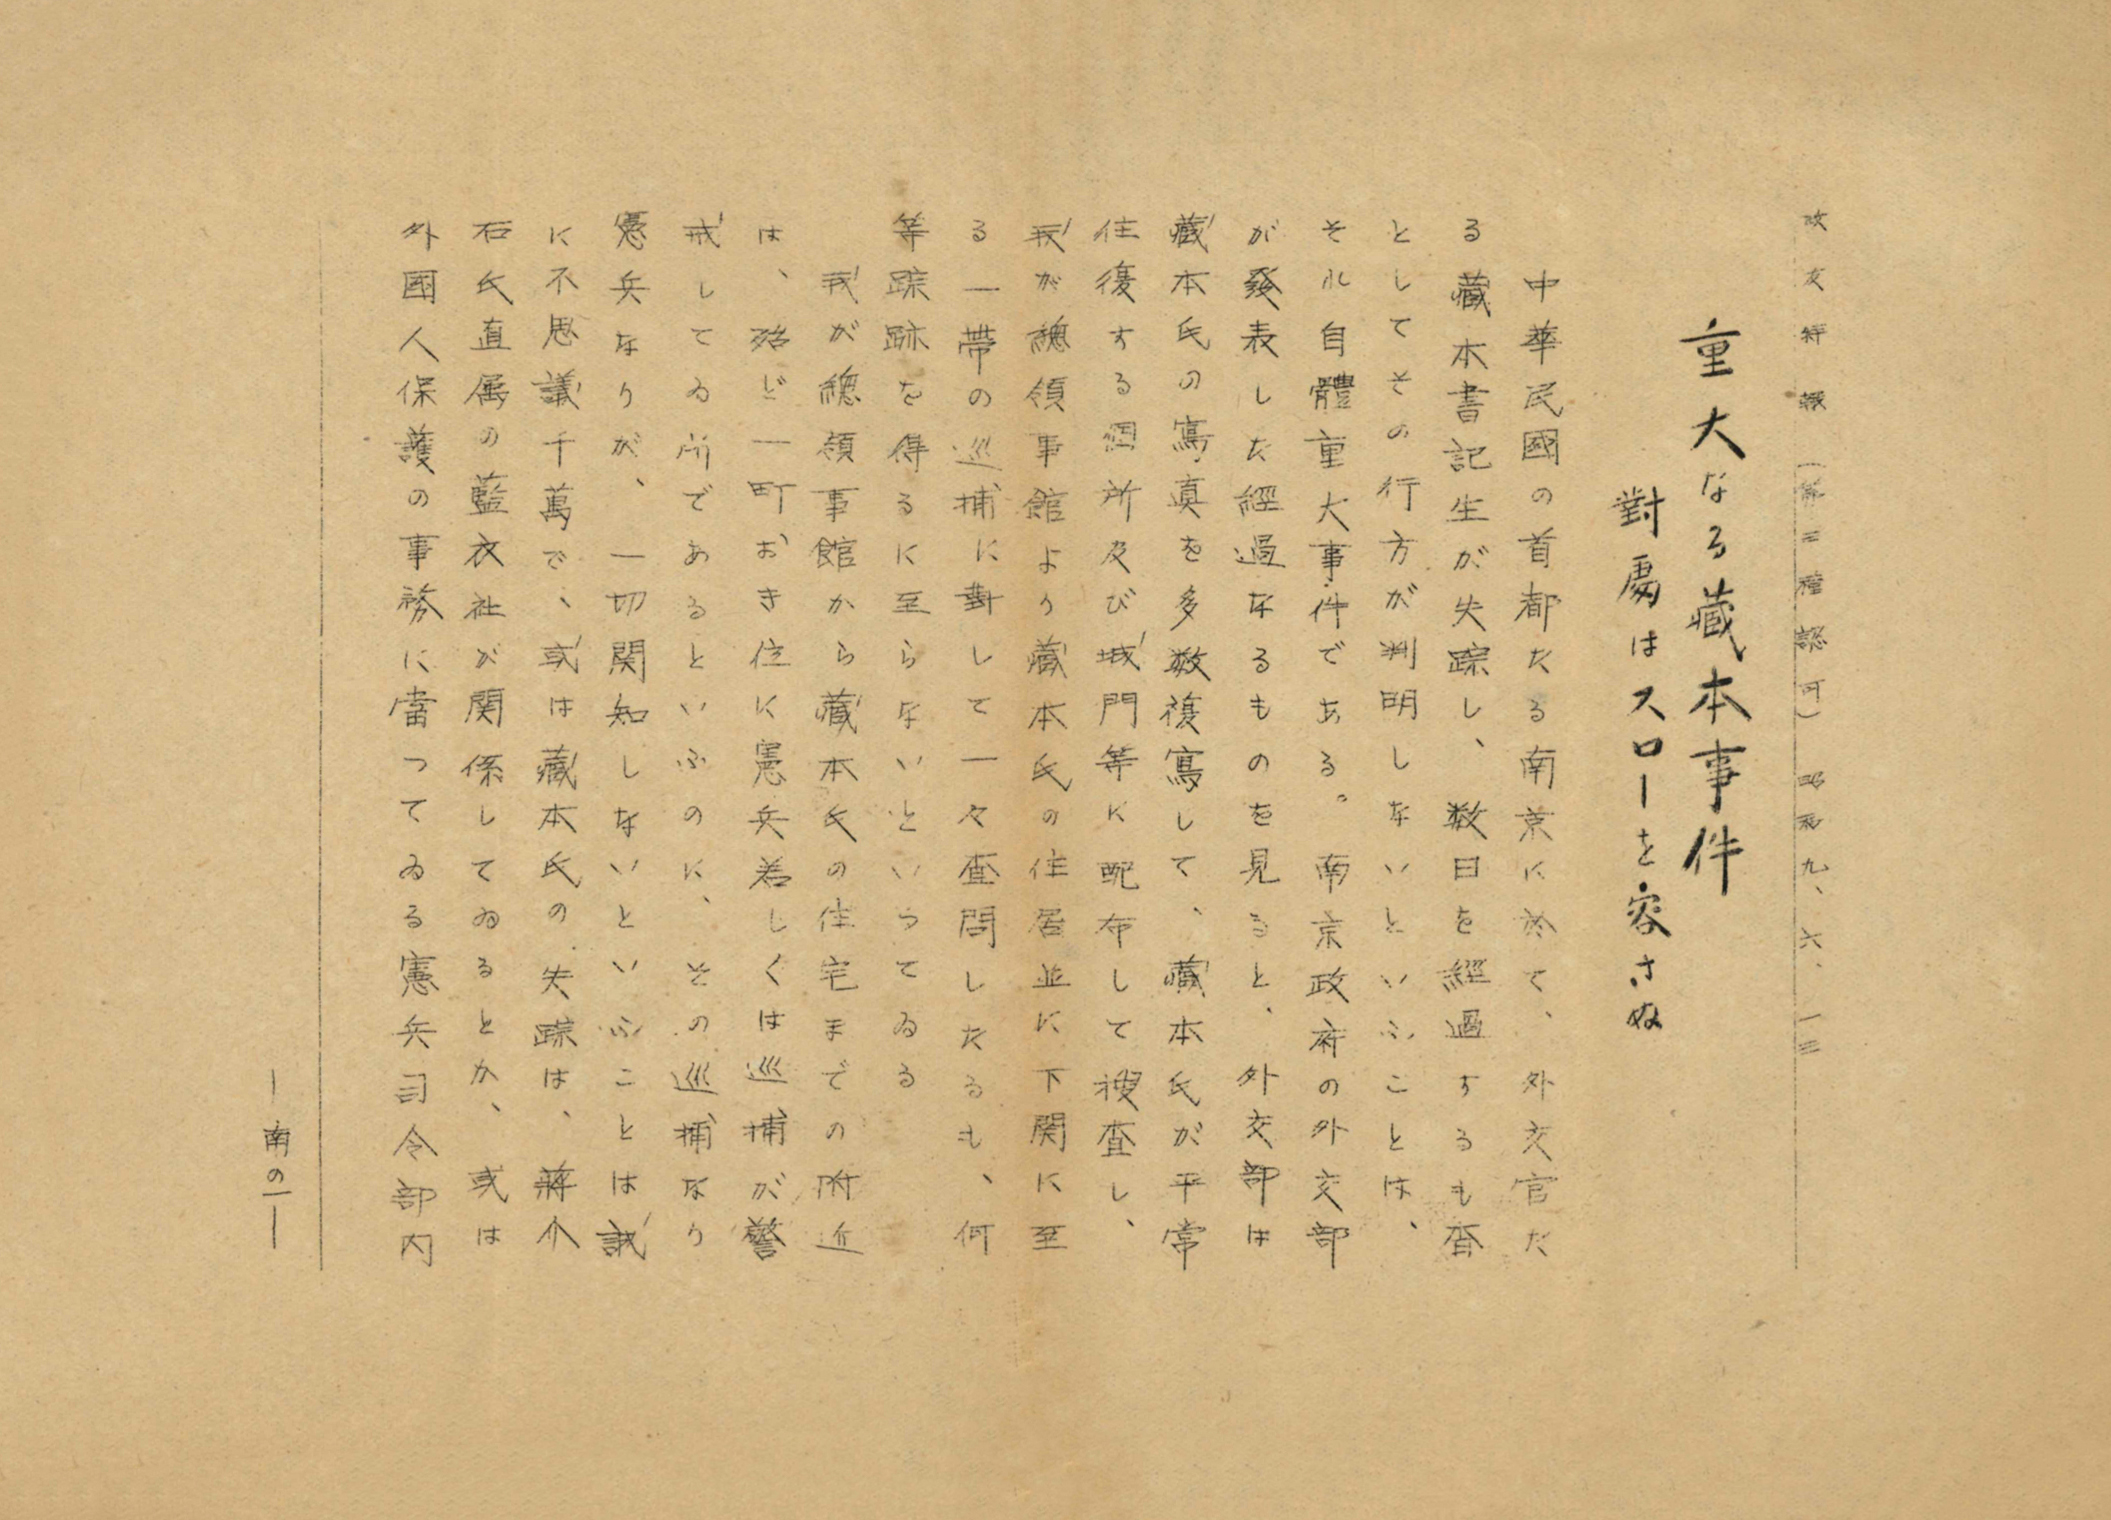 政友特報（第三種認可）昭和九、六、一三
重大なる藏本事件
對處はスローを容さぬ
中華民國の首都たる南京に於て、外交官た
る藏本書記生が失踪し、数日を経過するも杳
としてその行方が判明しないといふことは、
それ自體重大事件である。南京政府の外交部
が發表した経過なるものを見ると、外交部は
藏本氏の寫真を多数複寫して、藏本氏が平常
往復する個所及び城門等に配布して捜査し、
我が總領事館より藏本氏の住居並に下関に至
る一帯の巡捕に對して一々査問したるも、何
等踪跡を得るに至らないといつてゐる
我が總領事館から藏本氏の住宅までの附近
は、殆ど一町おき位に憲兵若しくは巡捕が警
戒してゐ所であるといふのに、その巡捕なり
憲兵なりが、一切関知しないといふことは誠
に不思議千萬で、或は藏本氏の失踪は、蔣介
石氏直属の藍衣社が関係してゐるとか、或は
外國人保護の事務に當つてゐる憲兵司令部内
―南の一―